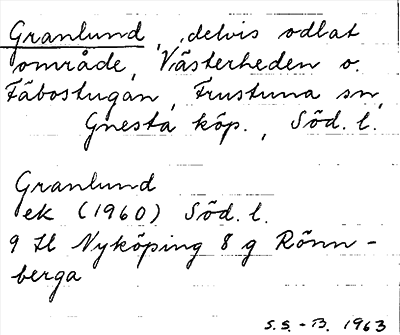 Granlund, delvis odlat
område, Västerheden o.
Fäbostugan, Frustuna sn,
Gnesta köp., Söd. l.
Granlund
ek (1960) Söd. l.
9 H Nyköping 8 g Rönn-
berga
S.S.-B. 1963